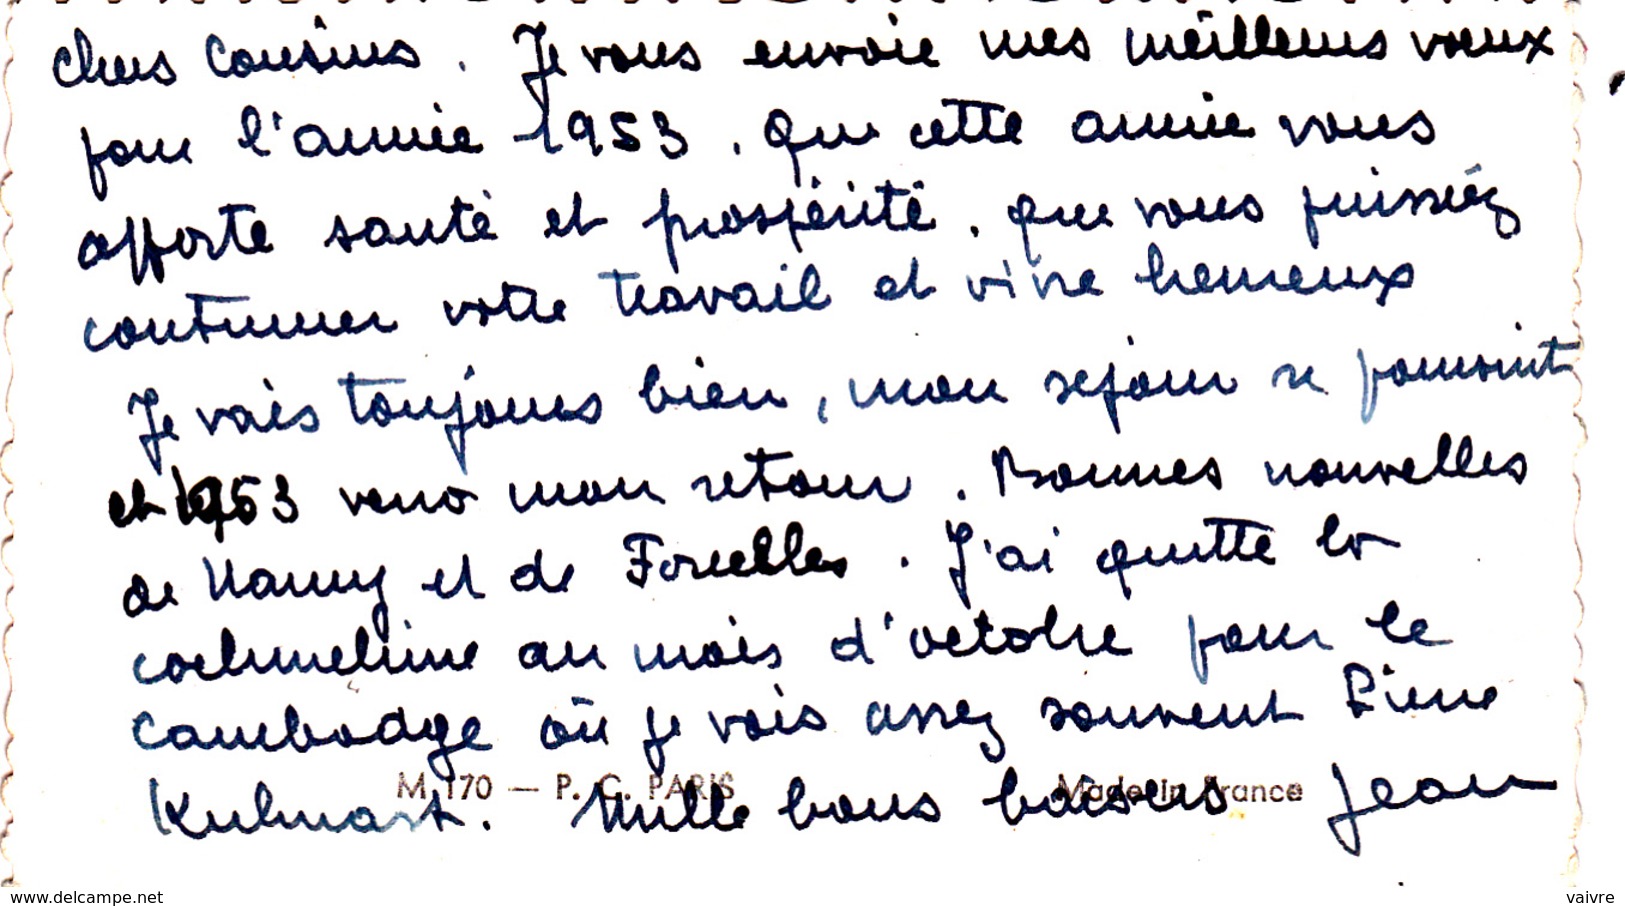 chers Cousins. Je vous envoie mes meilleurs voeux
pour l'année 1953. Que cette année vous
apporte santé et prospérité. que vous puissiez
continuer votre travail et vivre heureux
Je vais toujours bien, mon sejour se poursuit
et 1953 verra mon retour. Bonnes nouvelles
de Nancy et de Forcelles. J'ai quitté la
cochinchine au mois d'octobre pour le
Cambodge où je vois assez souvent Pierre
M 170 — P. C. PARIS Made in France
. Mille bons baisers Jean
www.delcampe.net vaivre